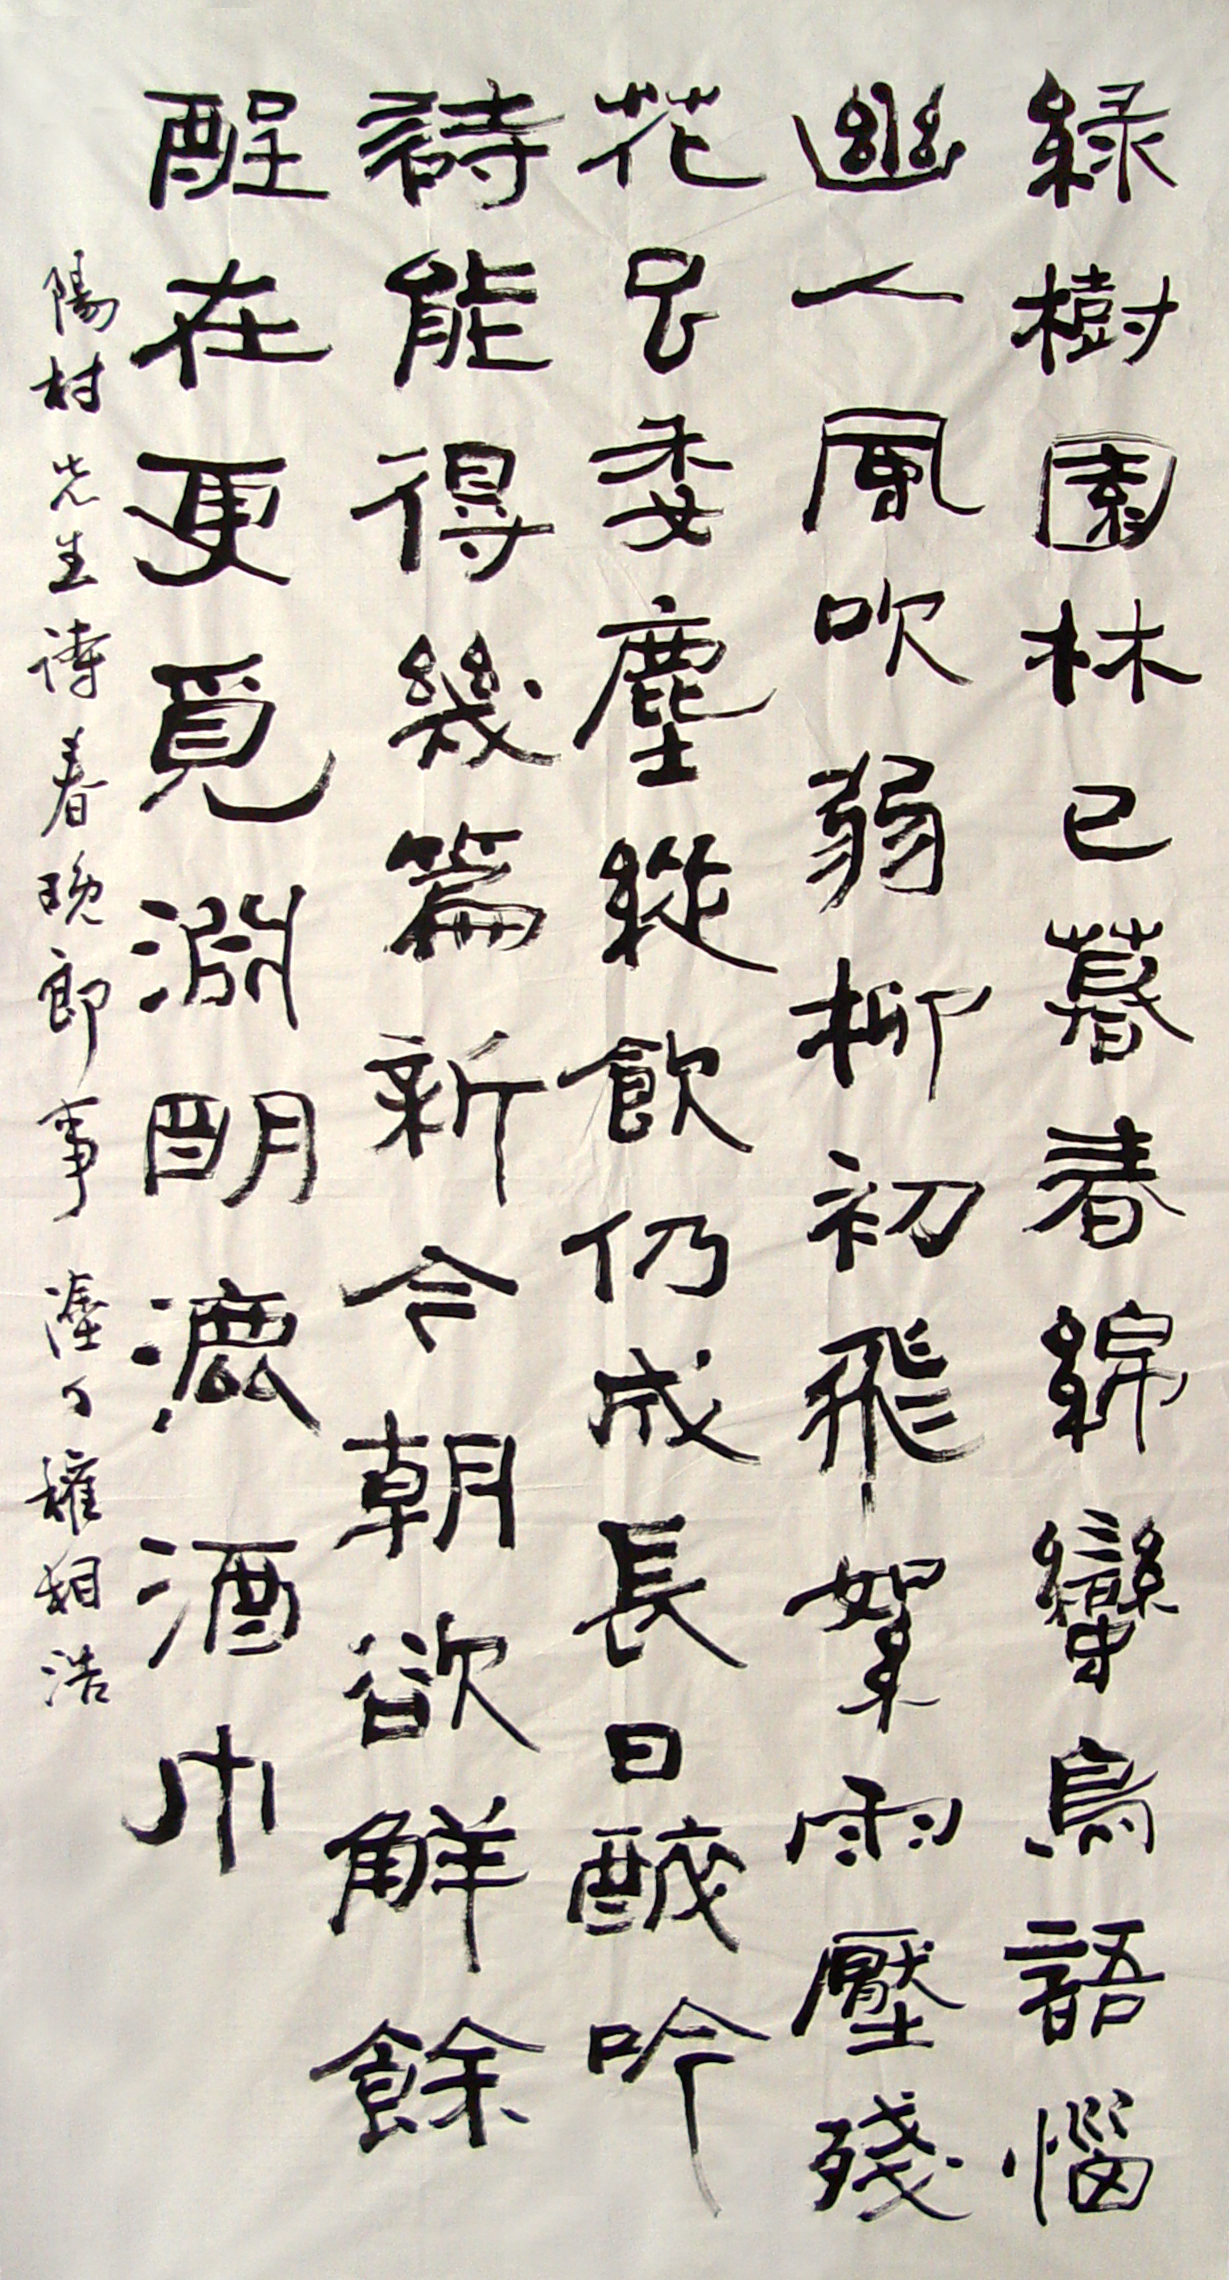 綠樹園林已暮春綿蠻鳥語惱
幽人風吹弱柳初飛絮雨壓殘
花已委塵縱飲仍成長日醉吟
詩能得幾篇新今朝欲解餘
酲在更覓淵明漉酒巾
陽村先生詩春晚即事 權相浩